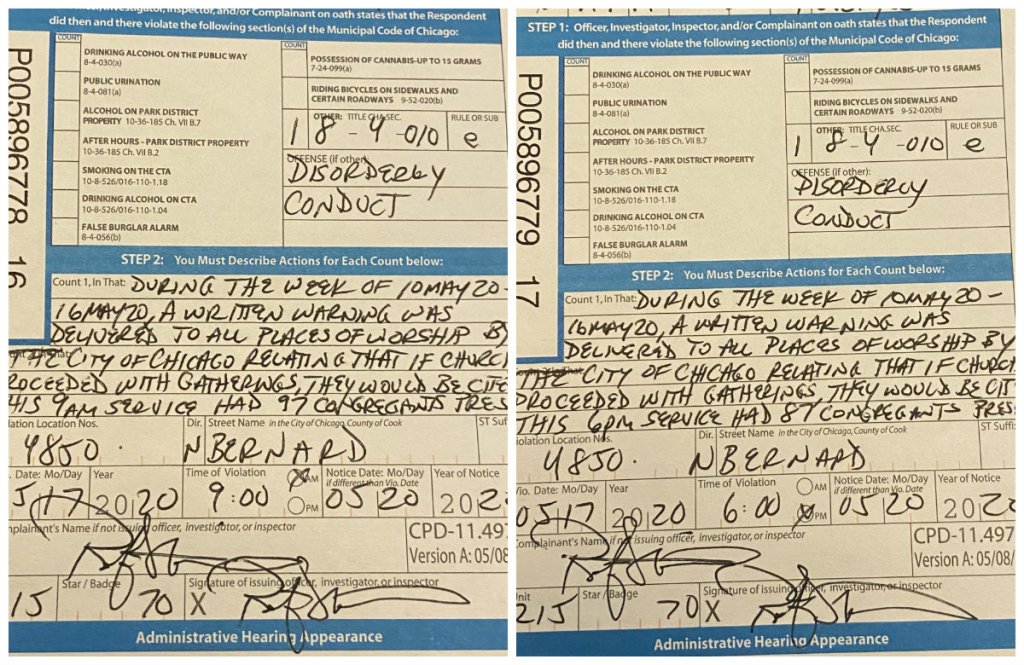 Investigator, Inspector, and/or Complainant on oath states that the Respondent
did then and there violate the following section(s) of the Municipal Code of Chicago:
COUNT
DRINKING ALCOHOL ON THE PUBLIC WAY
8-4-030(a)
PUBLIC URINATION
8-4-081(a)
ALCOHOL ON PARK DISTRICT
PROPERTY 10-36-185 Ch. VII B.7
AFTER HOURS - PARK DISTRICT PROPERTY
10-36-185 Ch. VII B.2
SMOKING ON THE CTA
10-8-526/016-110-1.18
DRINKING ALCOHOL ON CTA
10-8-526/016-110-1.04
FALSE BURGLAR ALARM
8-4-056(b)
COUNT
POSSESSION OF CANNABIS-UP TO 15 GRAMS
7-24-099(a)
RIDING BICYCLES ON SIDEWALKS AND
CERTAIN ROADWAYS 9-52-020(b)
OTHER: TITLE CHA.SEC. RULE OR SUB
1 8-4-010 e
OFFENSE (if other):
DISORDERLY
CONDUCT
P005896778 16
STEP 2: You Must Describe Actions for Each Count below:
Count 1, In That: DURING THE WEEK OF 10MAY20-
16MAY20, A WRITTEN WARNING WAS
DELIVERED TO ALL PLACES OF WORSHIP BY
THE CITY OF CHICAGO RELATING THAT IF CHURC
ROCEEDED WITH GATHERINGS, THEY WOULD BE CITE
HIS 9AM SERVICE HAD 97 CONGREGANTS PRES
lation Location Nos. Dir. Street Name in the City of Chicago, County of Cook ST Suf
4850. N BERNARD
. Date: Mo/Day Year Time of Violation AM PM Notice Date: Mo/Day if different than Vio. Date Year of Notice
5/17 2020 9:00 05 20 202
mplainant's Name if not issuing officer, investigator, or inspector
CPD-11.497
Version A: 05/08
Star / Badge Signature of issuing officer, investigator, or inspector
15 70 X
Administrative Hearing Appearance
STEP 1: Officer, Investigator, Inspector, and/or Complainant on oath states that the Respondent
did then and there violate the following section(s) of the Municipal Code of Chicago:
COUNT
DRINKING ALCOHOL ON THE PUBLIC WAY
8-4-030(a)
PUBLIC URINATION
8-4-081(a)
ALCOHOL ON PARK DISTRICT
PROPERTY 10-36-185 Ch. VII B.7
AFTER HOURS - PARK DISTRICT PROPERTY
10-36-185 Ch. VII B.2
SMOKING ON THE CTA
10-8-526/016-110-1.18
DRINKING ALCOHOL ON CTA
10-8-526/016-110-1.04
FALSE BURGLAR ALARM
8-4-056(b)
COUNT
POSSESSION OF CANNABIS-UP TO 15 GRAMS
7-24-099(a)
RIDING BICYCLES ON SIDEWALKS AND
CERTAIN ROADWAYS 9-52-020(b)
OTHER: TITLE CHA.SEC. RULE OR SUB
1 8-4-010 e
OFFENSE (if other):
DISORDERLY
CONDUCT
P005896779 17
STEP 2: You Must Describe Actions for Each Count below:
Count 1, In That: DURING THE WEEK OF 10MAY20-
16MAY20, A WRITTEN WARNING WAS
DELIVERED TO ALL PLACES OF WORSHIP BY
THE CITY OF CHICAGO RELATING THAT IF CHURC
PROCEEDED WITH GATHERINGS, THEY WOULD BE CIT
THIS 6PM SERVICE HAD 87 CONGREGANTS PRES
iolation Location Nos. Dir. Street Name in the City of Chicago, County of Cook ST Suffi
4850. N BERNARD
Vio. Date: Mo/Day Year Time of Violation AM PM Notice Date: Mo/Day if different than Vio. Date Year of Notice
05/17 2020 6:00 05 20 202
Complainant's Name if not issuing officer, investigator, or inspector
CPD-11.497
Version A: 05/08/
nit Star / Badge Signature of issuing officer, investigator, or inspector
215 70 X
Administrative Hearing Appearance